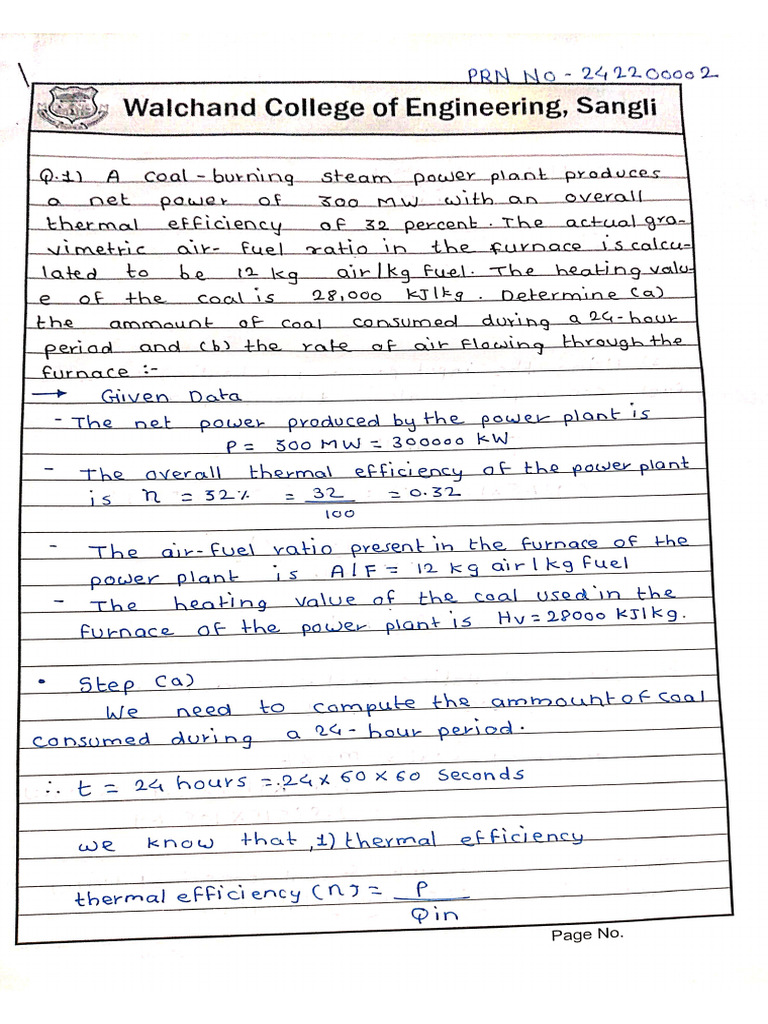 PRN NO - 242200002
Walchand College of Engineering, Sangli
Q.1) A coal-burning steam power plant produces
a net power of 300 MW with an overall
thermal efficiency of 32 percent. The actual gra-
vimetric air-fuel ratio in the furnace is calcu-
lated to be 12 kg air/kg fuel. The heating valu-
e of the coal is 28,000 KJ/kg. Determine (a)
the ammount of coal consumed during a 24-hour
period and (b) the rate of air flowing through the
furnace :-
→ Given Data
- The net power produced by the power plant is
P = 300 MW = 300000 KW
- The overall thermal efficiency of the power plant
is η = 32% = 32/100 = 0.32
- The air-fuel ratio present in the furnace of the
power plant is A/F = 12 kg air/kg fuel
- The heating value of the coal used in the
furnace of the power plant is Hv = 28000 KJ/kg.
• Step (a)
We need to compute the ammount of coal
consumed during a 24-hour period.
∴ t = 24 hours = 24 × 60 × 60 seconds
we know that, 1) thermal efficiency
thermal efficiency (η) = P/Qin
Page No.